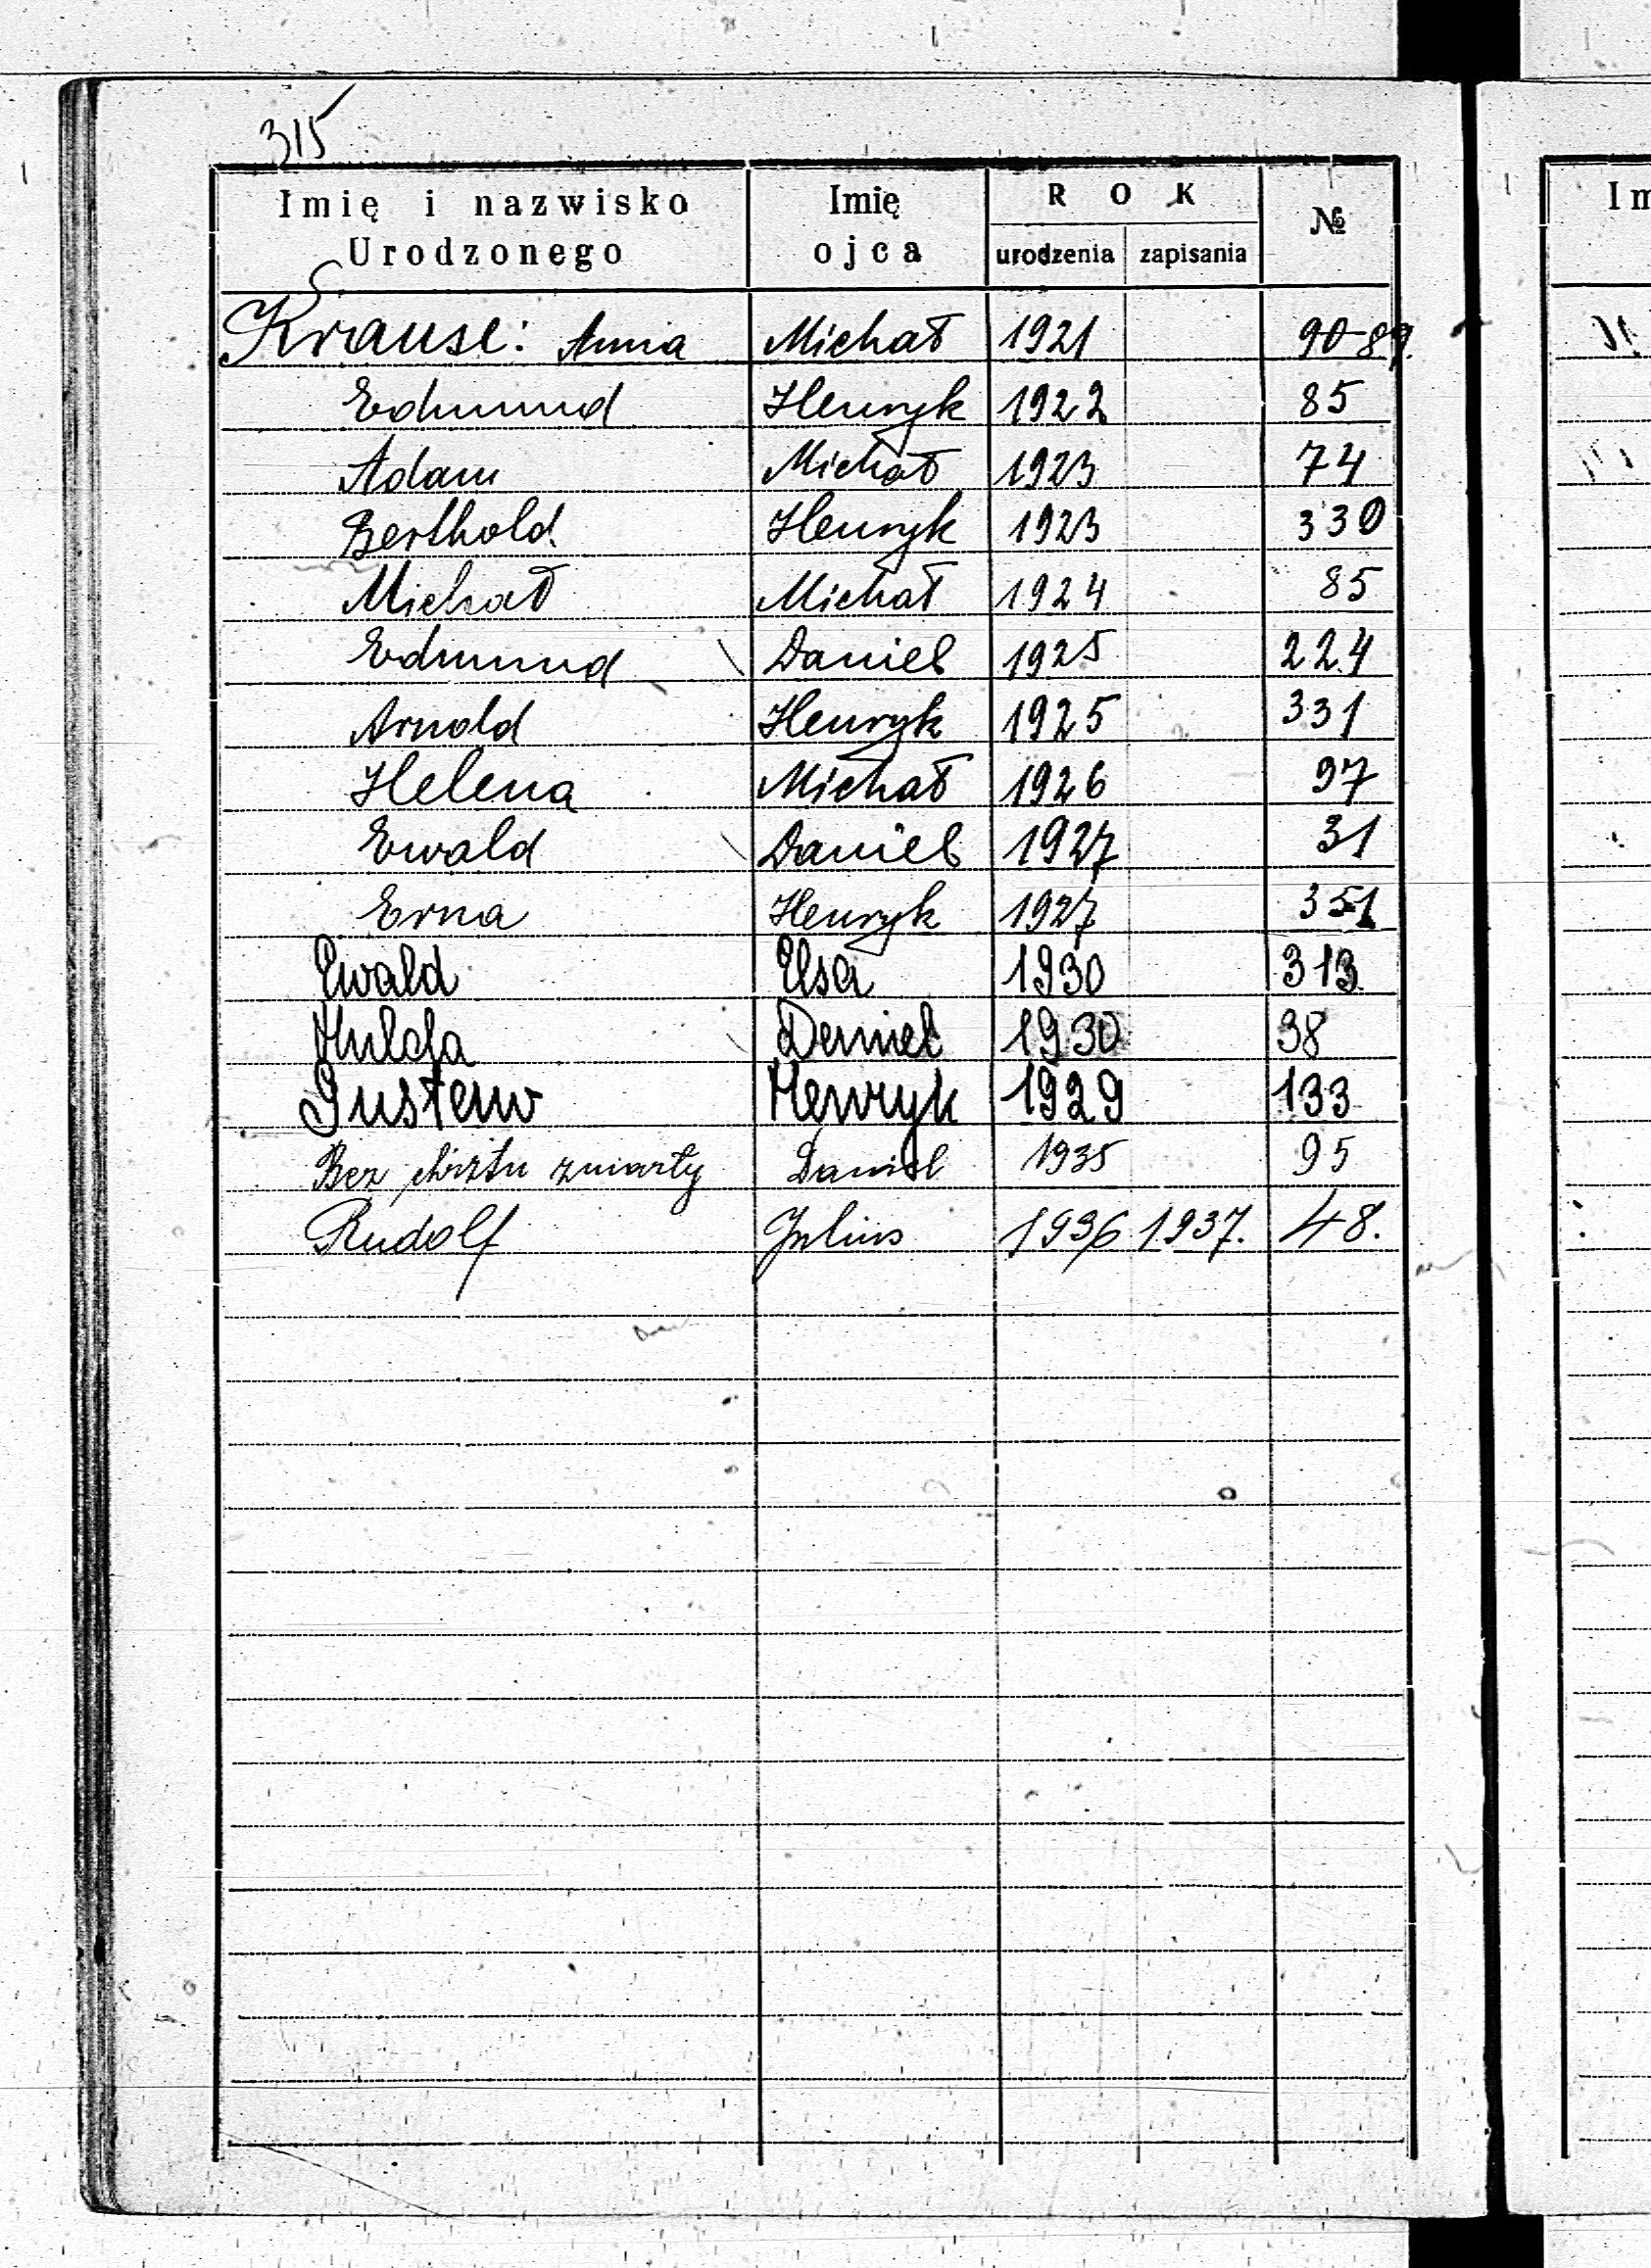 315
Imię i nazwisko Urodzonego Imię ojca ROK urodzenia zapisania №
Krause: Anna Michał 1921 90-89.
Edmund Henryk 1922 85
Adam Michał 1923 74
Berthold Henryk 1923 330
Michał Michał 1924 85
Edmund Daniel 1925 224
Arnold Henryk 1925 331
Helena Michał 1926 97
Ewald Daniel 1927 31
Erna Henryk 1927 351
Ewald Elsa 1930 313
Hulda Daniel 1930 38
Gustaw Henryk 1929 133
Bez chrztu zmarły Daniel 1935 95
Rudolf Julius 1936 1937. 48.
Im